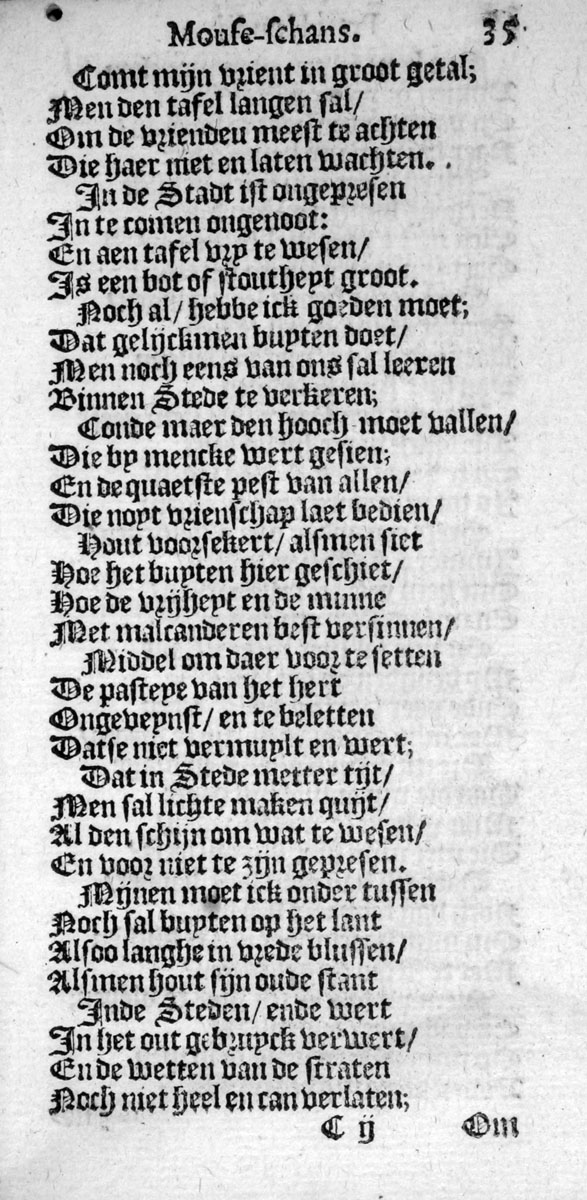 Mouse-schans. 35
Comt mijn vrient in groot getal;
Men den tafel langen sal/
Om de vriendeu meest te achten
Die haer niet en laten wachten. .
In de Stadt ist ongepresen
In te comen ongenoot:
En aen tafel vry te wesen/
Is een bot of stoutheyt groot.
Noch al/ hebbe ick goeden moet;
Dat gelijckmen buyten doet/
Men noch eens van ons sal leeren
Binnen Stede te verkeren;
Conde maer den hooch moet vallen/
Die by mencke wert gesien;
En de quaetste pest van allen/
Die noyt vrienschap laet bedien/
Hout voorsekert/ alsmen siet
Hoe het buyten hier geschiet/
Hoe de vrijheyt en de minne
Met malcanderen best versinnen/
Middel om daer voor te setten
De pasteye van het hert
Ongeveynst/ en te beletten
Datse niet vermuylt en wert;
Dat in Stede metter tijt/
Men sal lichte maken quijt/
Al den schijn om wat te wesen/
En voor niet te zijn gepresen.
Mijnen moet ick onder tussen
Noch sal buyten op het lant
Alsoo langhe in vrede blussen/
Alsmen hout sijn oude stant
Inde Steden/ ende wert
In het out gebruyck verwert/
En de wetten van de straten
Noch niet heel en can verlaten;
C ij Om